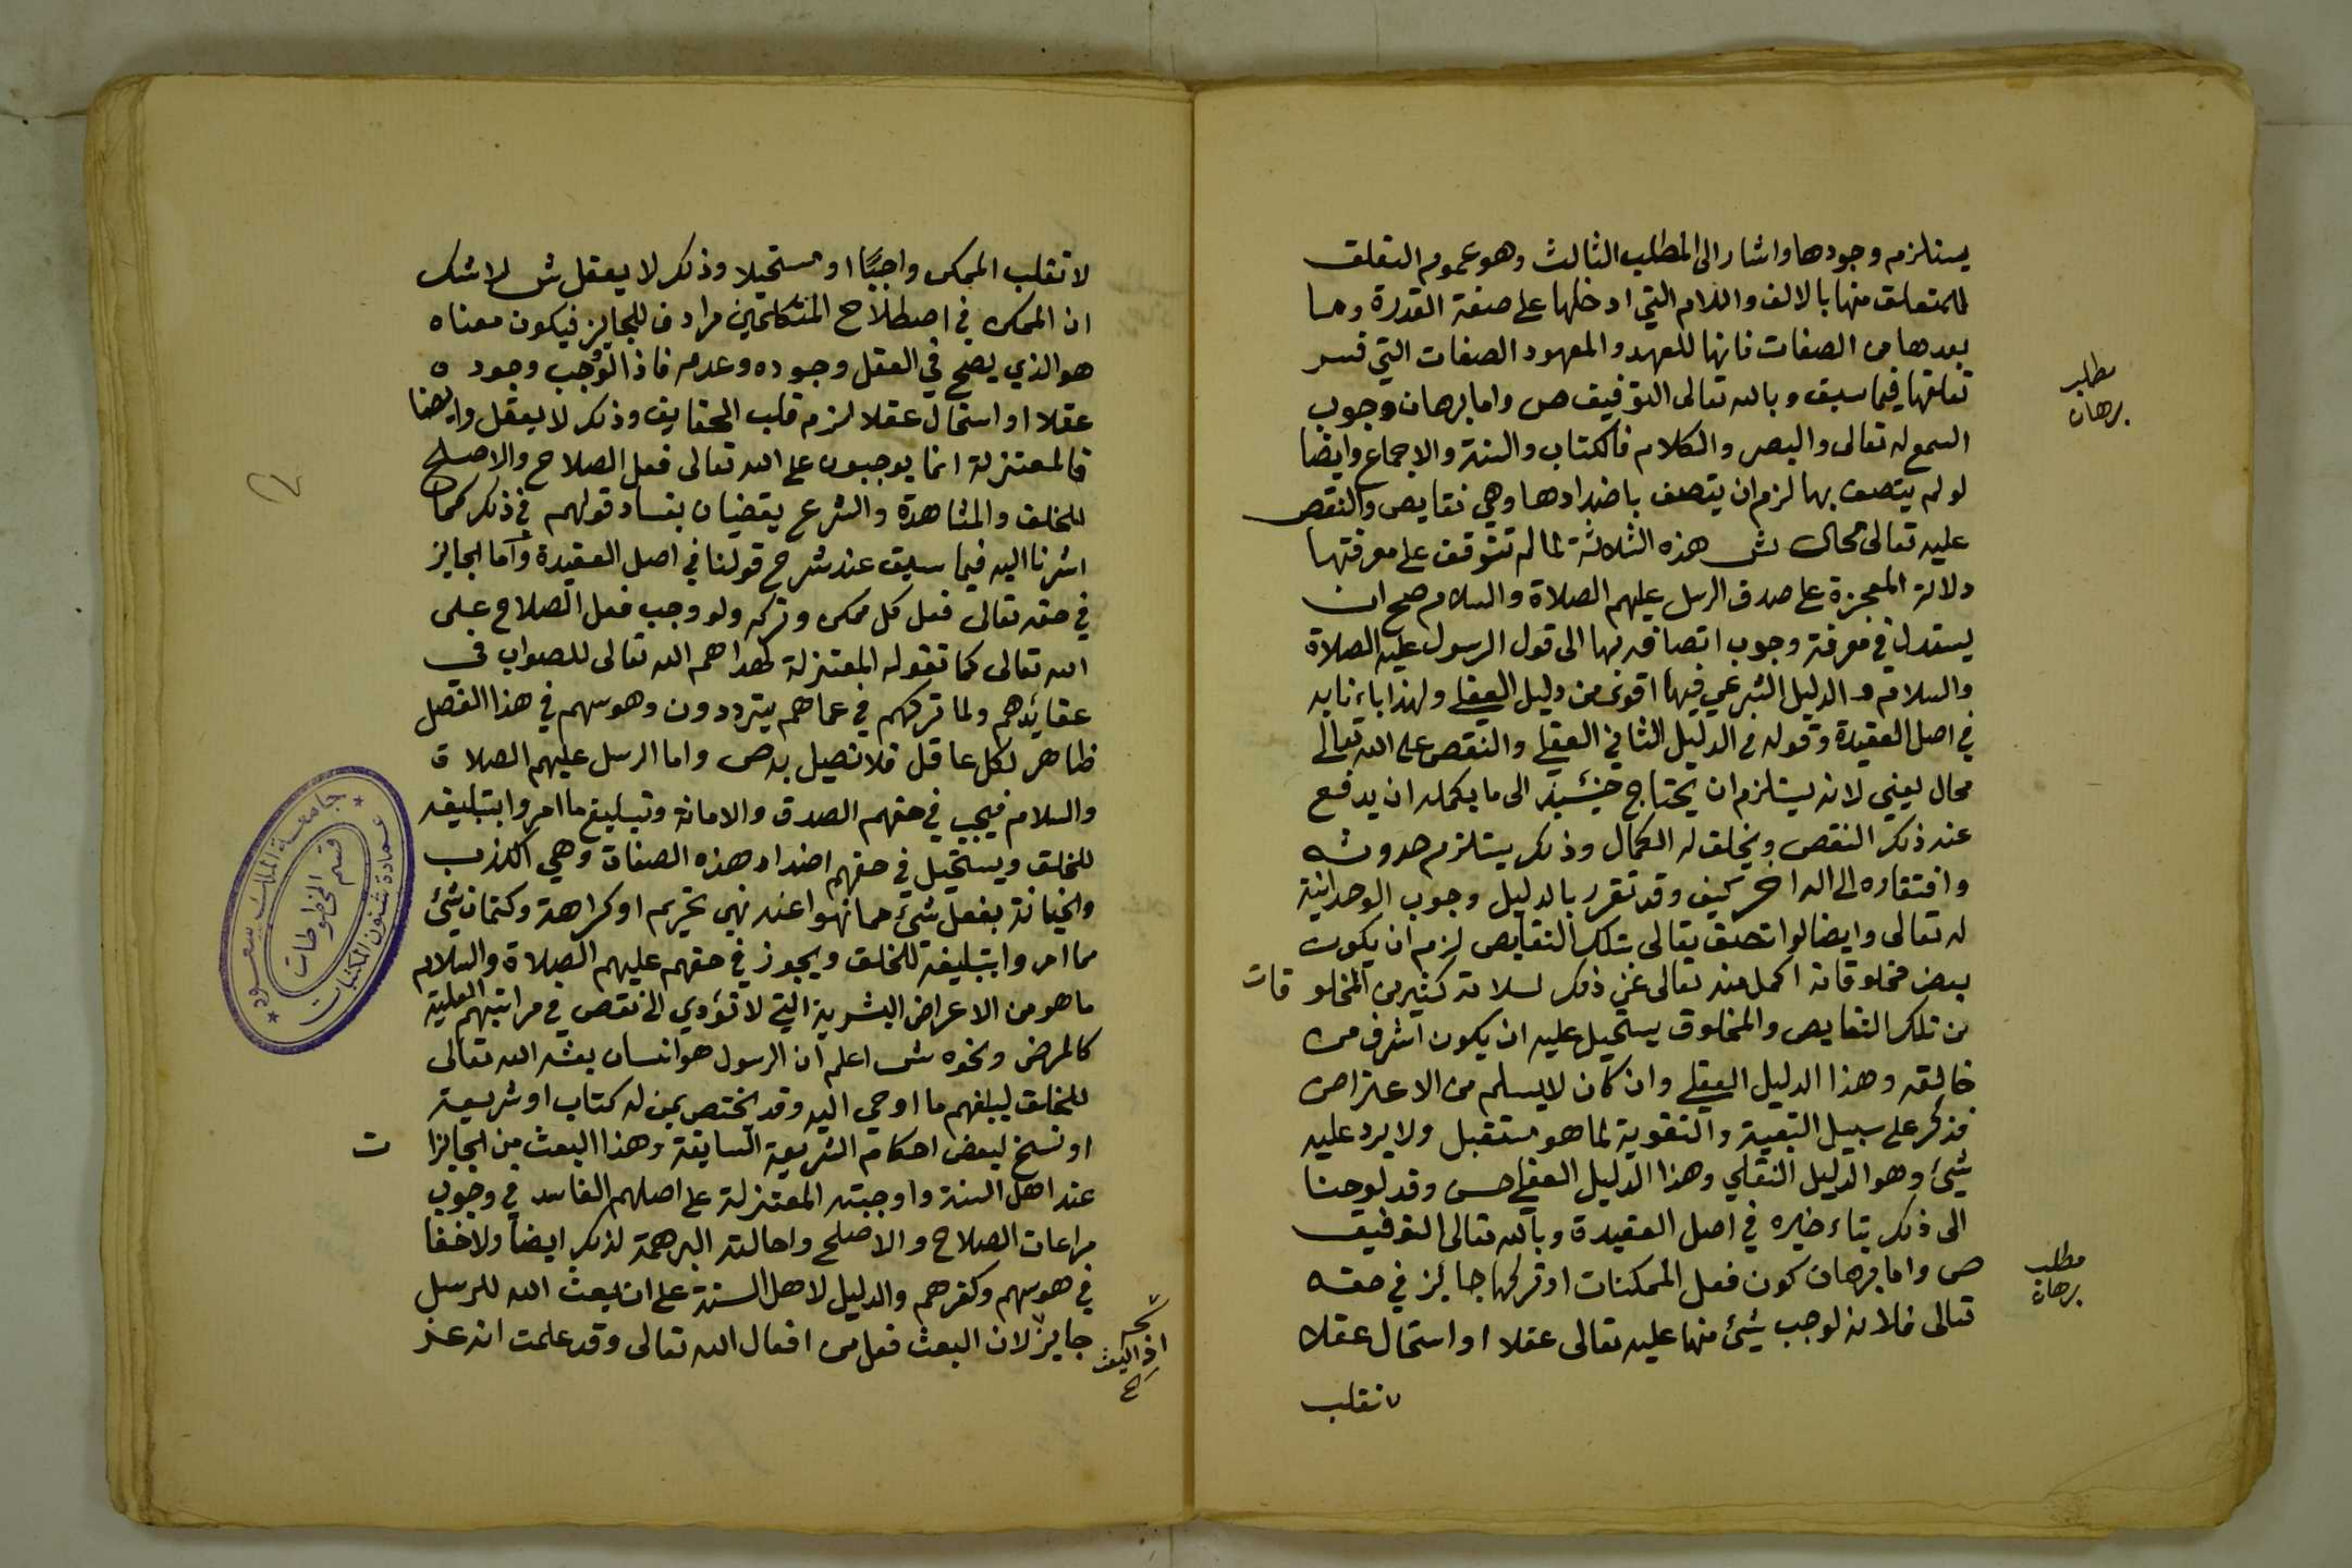 يستلزم وجودها واشار الى المطلب الثالث وهو عموم التعلق
للمتعلق منها بالالف واللام التي ادخلها على صفة القدرة وما
بعدها من الصفات فانها للعهد والمعهود الصفات التي فسر
تعلقها فيما سبق وبالله تعالى التوفيق ص واما برهان وجوب
السمع له تعالى والبصر والكلام فالكتاب والسنة والاجماع وايضا
لو لم يتصف بها لزم ان يتصف باضدادها وهي نقايص والنقص
عليه تعالى محال ش هذه الثلاثة لما لم تتوقف على معرفتها
دلالة المعجزة على صدق الرسل عليهم الصلاة والسلام صح ان
يستدل في معرفة وجوب اتصافه بها الى قول الرسول عليه الصلاة
والسلام والدليل الشرعي فيها اقوى من دليل العقلي ولهذا بدانا به
في اصل العقيدة وقوله في الدليل الثاني العقلي والنقص على الله تعالى
محال يعني لانه يستلزم ان يحتاج حينئيذ الى ما يكمله ان يدفع
عنه ذلك النقص ويخلق له الكمال وذلك يستلزم حدوثه
وافتقاره الى اله اخر كيف وقد تقرر بالدليل وجوب الوحدانية
له تعالى وايضا لو اتصف تعالى بتلك النقايص لزم ان يكون
بعض مخلوقاته اكمل منه تعالى عن ذلك لسلامة كثير من المخلوقات
من تلك النقايص والمخلوق يستحيل عليه ان يكون اشرف من
خالقه وهذا الدليل العقلي وان كان لا يسلم من الاعتراض
فذكر على سبيل التبعية والتقوية لما هو مستقبل ولا يرد عليه
شيئ وهو الدليل النقلي وهذا الدليل العقلي حسن وقد لوحنا
الى ذلك بتاءخيره في اصل العقيدة وبالله تعالى التوفيق
ص واما برهان كون فعل الممكنات او تركها جائز في حقه
تعالى فلانه لوجب شيئ منها عليه تعالى عقلا او استحال عقلا
لانقلب
مطلب
برهان
مطلب
برهان
لا تقلب الممكن واجبًا او مستحيلا وذلك لا يعقل ش لا شك
ان الممكن في اصطلاح المتكلمين مرادف للجايز فيكون معناه
هو الذي يصح في العقل وجوده وعدمه فاذا لو وجب وجوده
عقلا او استحال عقلا لزم قلب الحقايق وذلك لا يعقل وايضا
فالمعتزلة انما يوجبون على الله تعالى فعل الصلاح والاصلح
للخلق والمشاهدة والشرع يقضيان بفساد قولهم في ذلك كما
اشرنا اليه فيما سبق عند شرح قولنا في اصل العقيدة واما الجايز
في حقه تعالى فعل كل ممكن وتركه ولو وجب فعل الصلاح على
الله تعالى كما تقوله المعتزلة لهداهم الله تعالى للصواب في
عقائدهم ولما تركهم في عماهم يترددون وهوسهم في هذا الفصل
ظاهر لكل عاقل فلا نصيل به ص واما الرسل عليهم الصلاة
والسلام فيجب في حقهم الصدق والامانة وتبليغ ما امروا بتبليغه
للخلق ويستحيل في حقهم اضداد هذه الصفات وهي الكذب
والخيانة بفعل شيئ مما نهوا عنه نهي تحريم او كراهة وكتمان شيئ
مما امروا بتبليغه للخلق ويجوز في حقهم عليهم الصلاة والسلام
ما هو من الاعراض البشرية التي لا تؤدي الى نقص في مراتبهم العلية
كالمرض ونحوه ش اعلم ان الرسول هو انسان بعثه الله تعالى
للخلق ليبلغهم ما اوحي اليه وقد يختص بمن له كتاب او شريعة
او نسخ لبعض احكام الشريعة السابقة وهذا البعث من الجايزات
عند اهل السنة واوجبته المعتزلة على اصلهم الفاسد في وجوب
مراعات الصلاح والاصلح واحالته البرهمة لذلك ايضا ولا خفا
في هوسهم وكفرهم والدليل لاهل السنة على ان بعث الله للرسل
جايز لان البعث فعل من افعال الله تعالى وقد علمت انه عز
اذ البعث
جامعة الملك سعود
عمادة شئون المكتبات
قسم المخطوطات